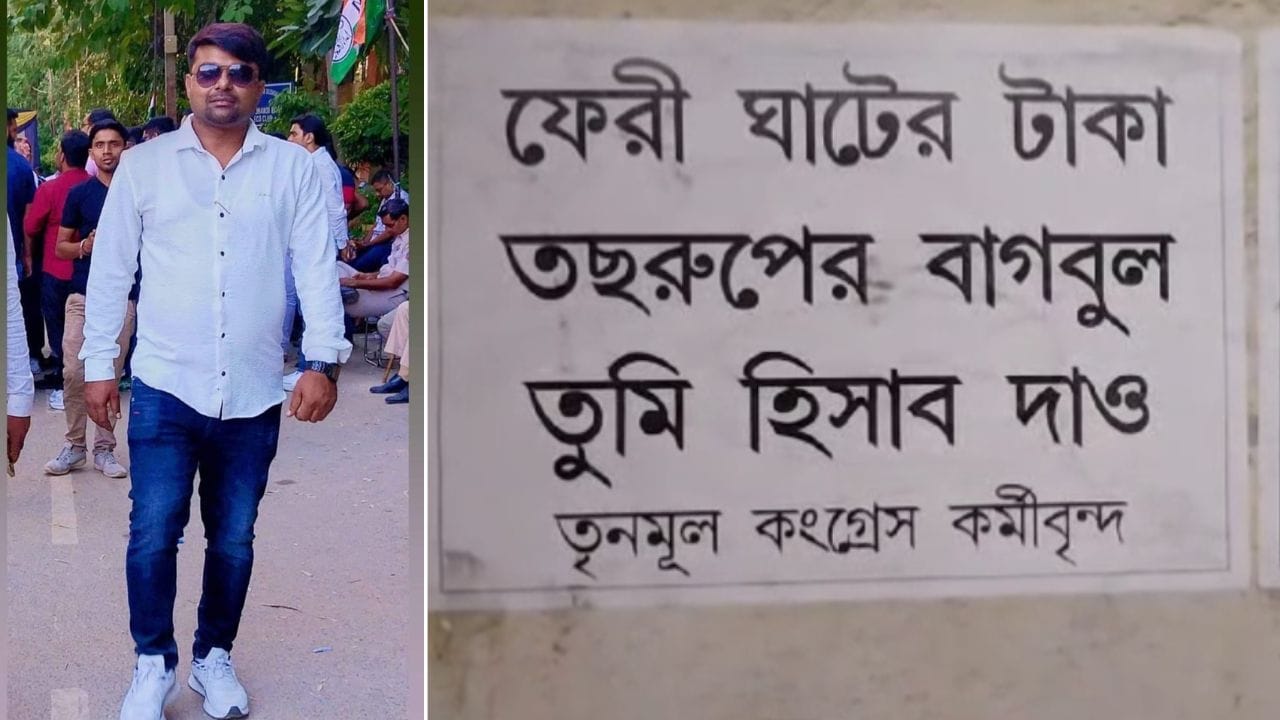 ফেরী ঘাটের টাকা
তছরুপের বাগবুল
তুমি হিসাব দাও
তৃনমূল কংগ্রেস কর্মীবৃন্দ